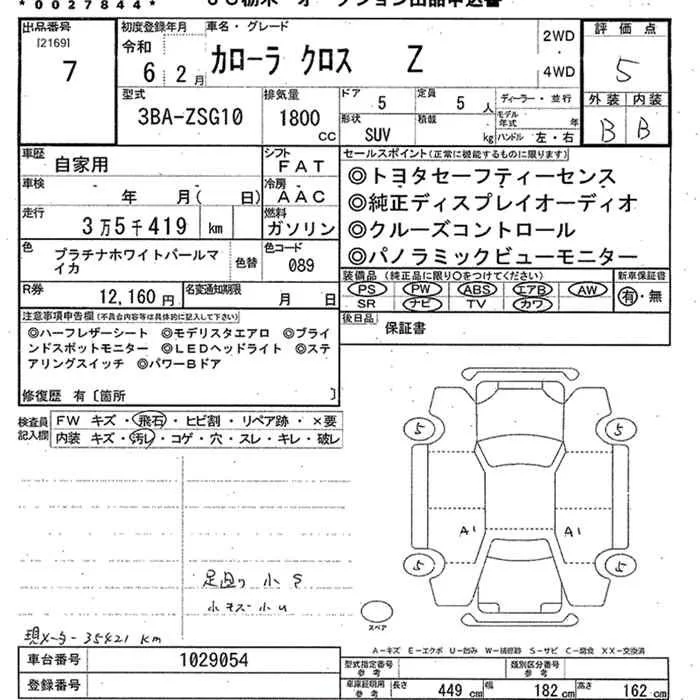 *0027844*
JU栃木 オークション出品申込書
出品番号 初度登録年月 車名・グレード 2WD ・ 4WD 評価点
[2169] 7 令和 6 2月 カローラ クロス Z 5
型式 排気量 ドア 5 定員 5人 ディーラー・並行 外装 内装
3BA-ZSG10 1800cc 形状 SUV 積載 kg モデル年式 年 ハンドル 左・右 B B
車歴 自家用 シフト FAT セールスポイント(正常に機能するものに限ります)
車検 年 月( 日) 冷房 AAC ◎トヨタセーフティーセンス
走行 3万5千419 km 燃料 ガソリン ◎純正ディスプレイオーディオ
◎クルーズコントロール
色 プラチナホワイトパールマイカ 色替 色コード 089 ◎パノラミックビューモニター
R券 12,160円 名変通知期限 月 日 装備品 (純正品に限り○をつけてください) 新車保証書
PS PW ABS エアB AW 有・無
SR ナビ TV カワ
注意事項申告欄(不具合内容等は具体的に記入して下さい) 後日品 保証書
◎ハーフレザーシート ◎モデリスタエアロ ◎ブライ
ンドスポットモニター ◎LEDヘッドライト ◎ステ
アリングスイッチ ◎パワーBドア
修復歴 有〔箇所 〕
検査員記入欄 FW キズ・飛石・ヒビ割・リペア跡・×要
内装 キズ・汚レ・コゲ・穴・スレ・キレ・破レ
5 5
A1 A1
5 5
足廻り 小S
スペア
現メーター 35421 km
A-キズ E-エクボ U-凹み W-補修跡 S-サビ C-腐食 XX-交換済
車台番号 1029054 型式指定番号 参考 類別区分番号 参考
登録番号 車庫証明用 参考 長さ 449 cm 幅 182 cm 高さ 162 cm